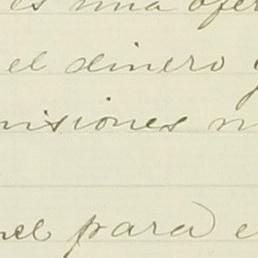 es una ofer
el dinero
misiones n
el para e